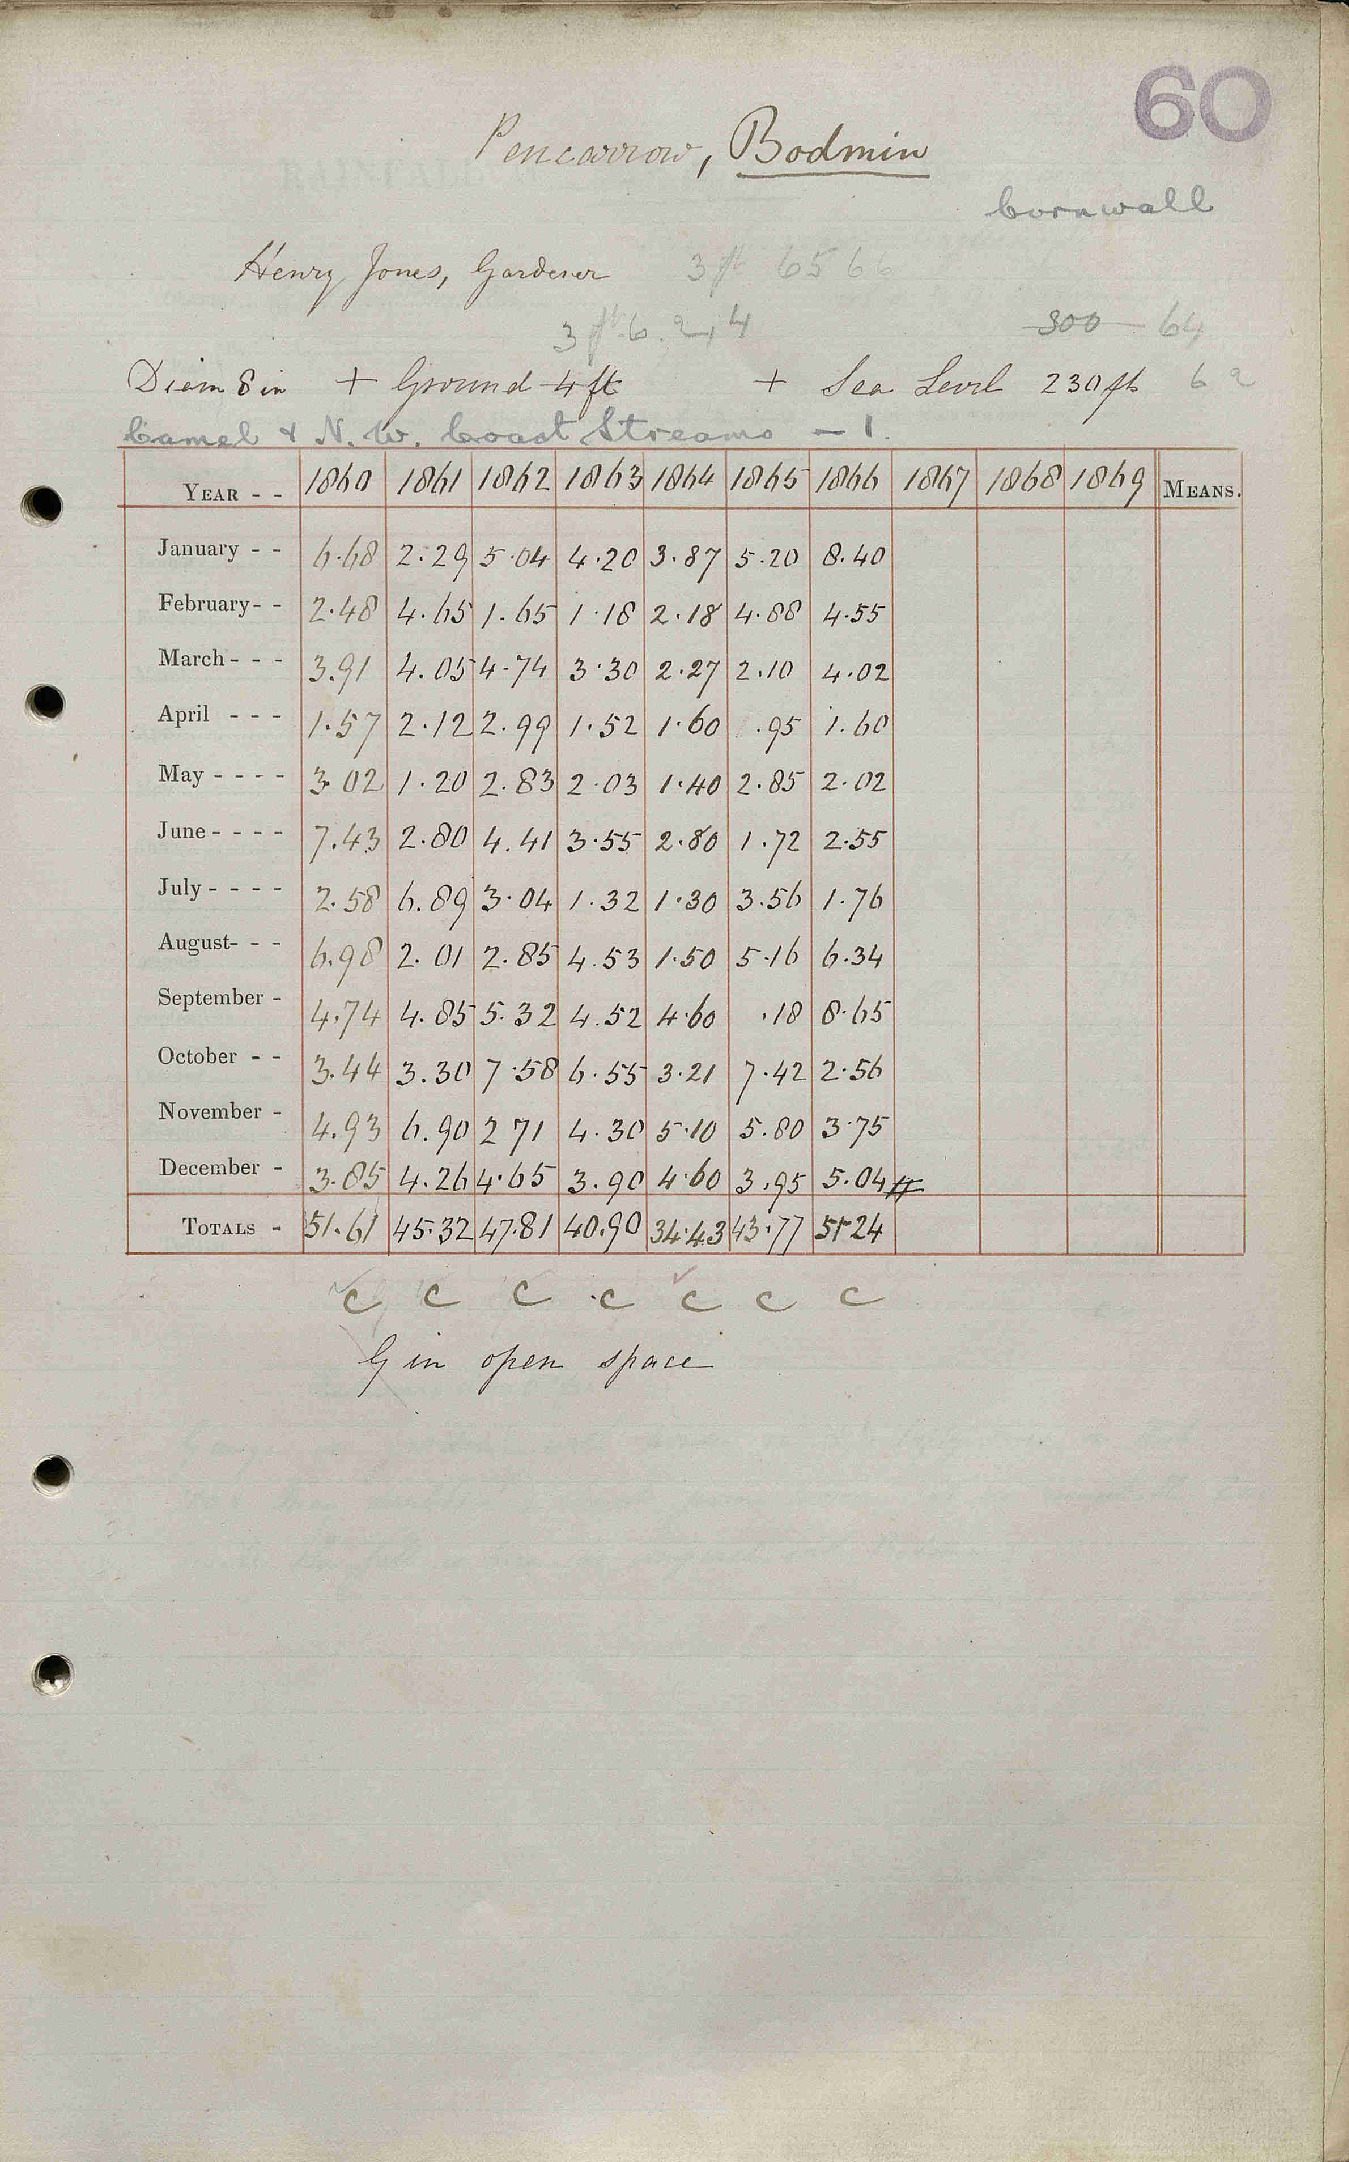 60
Pencarrow, Bodmin
Cornwall
Henry Jones, Gardener 3 ft 65 66
3 ft 6. 2, 4 300 - 64
Diam 8 in + Ground 4 ft + Sea Level 230 ft 62
Camel & N. W. Coast Streams - 1.
YEAR - - 1860 1861 1862 1863 1864 1865 1866 1867 1868 1869 MEANS.
January - - 6.68 2.29 5.04 4.20 3.87 5.20 8.40
February - - 2.48 4.65 1.65 1.18 2.18 4.88 4.55
March - - - 3.91 4.05 4.74 3.30 2.27 2.10 4.02
April - - - 1.57 2.12 2.99 1.52 1.60 .95 1.60
May - - - - 3.02 1.20 2.83 2.03 1.40 2.85 2.02
June - - - - 7.43 2.80 4.41 3.55 2.80 1.72 2.55
July - - - - 2.58 6.89 3.04 1.32 1.30 3.56 1.76
August - - - 6.98 2.01 2.85 4.53 1.50 5.16 6.34
September - 4.74 4.85 5.32 4.52 4.60 .18 8.65
October - - 3.44 3.30 7.58 6.55 3.21 7.42 2.56
November - 4.93 6.90 2 71 4.30 5.10 5.80 3.75
December - 3.85 4.26 4.65 3.90 4.60 3.95 5.04
TOTALS - 51.61 45.32 47.81 40.90 34.43 43.77 51.24
c c c c c c c
G in open space